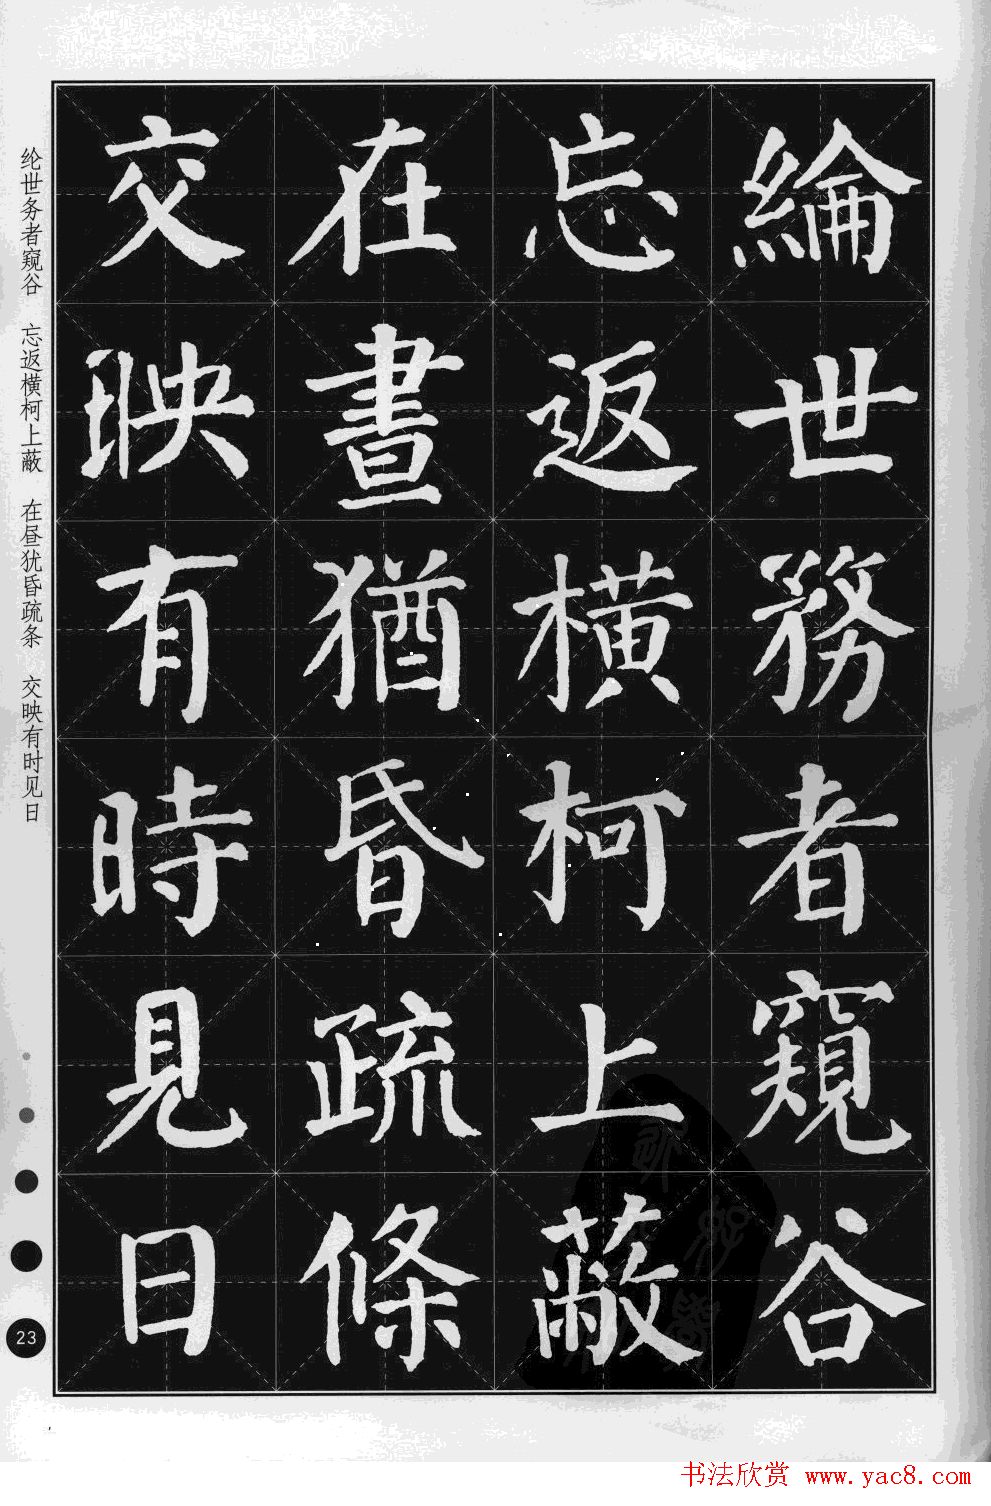 綸世務者窺谷
忘返橫柯上蔽
在晝猶昏疏條
交映有時見日
纶世务者窥谷 忘返横柯上蔽 在昼犹昏疏条 交映有时见日
23
书法欣赏 www.yac8.com